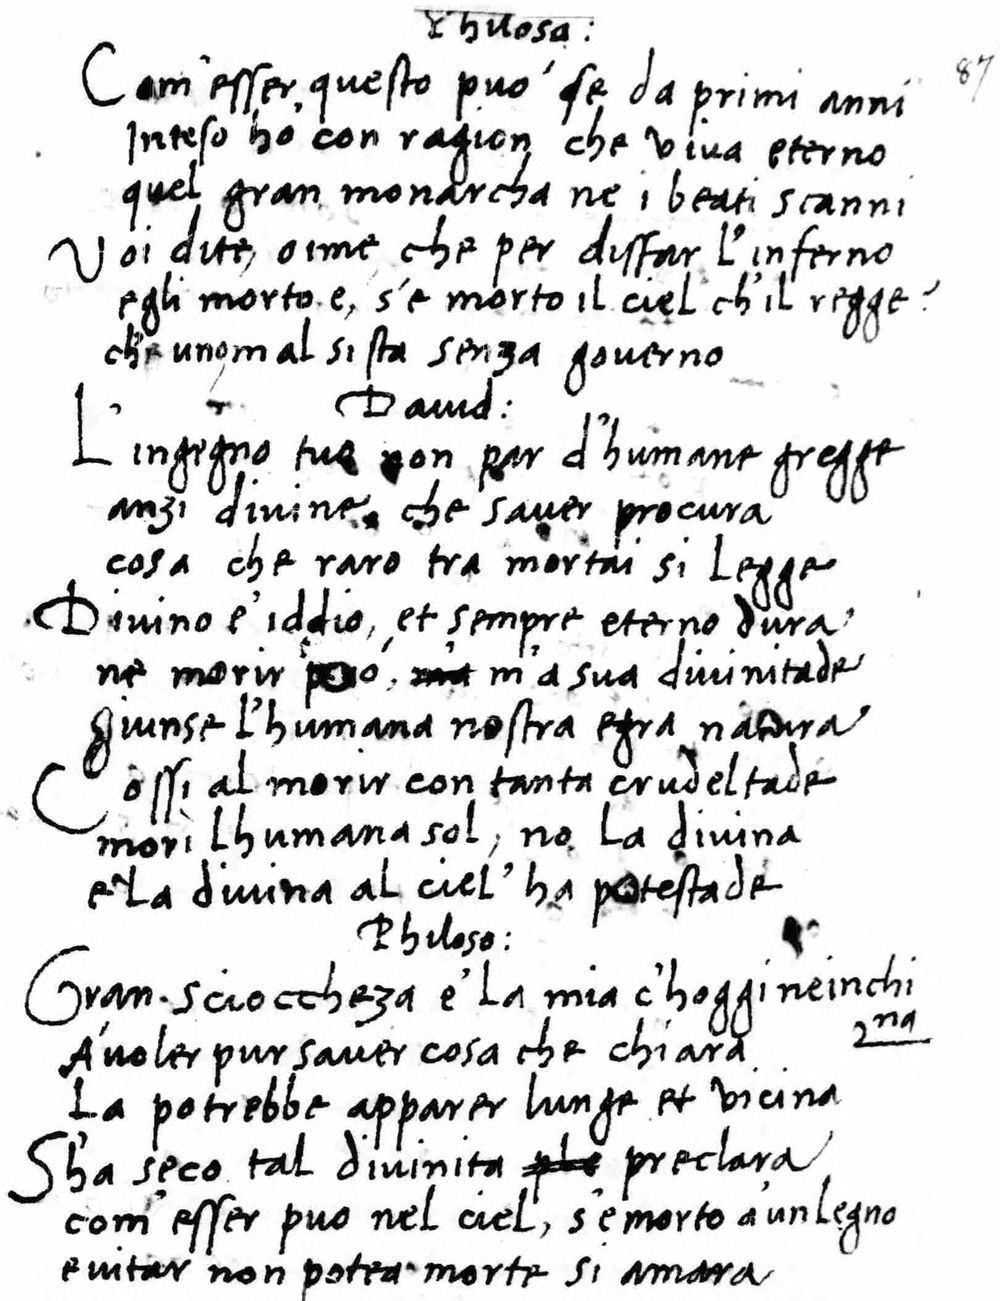 Philoso:
87
Com'esser questo può se da primi anni
Inteso ho con ragion che viva eterno
quel gran monarcha ne i beati scanni
Voi dite, oime che per disfar l'inferno
egli morto e, s'e morto il ciel ch'il regge?
che un om al si sta senza governo
David:
L'ingegno tuo non par d'humane gregge
anzi divine, che saver procura
cosa che raro tra mortai si legge
Divino e' iddio, et sempre eterno dura
ne morir può, m'a sua divinitade
giunse l'humana nostra egra natura
Cossi al morir con tanta crudeltade
morì lhumana sol, no la divina
e la divina al ciel' ha potestade
Philoso:
Gran sciocchezza e' la mia c'hoggi neinchi
2na
A' voler pur saver cosa che chiara
La potrebbe apparer lunge et vicina
S'ha seco tal divinita preclara
com'esser puo nel ciel, s'e morto a' un legno
evitar non potea morte si amara